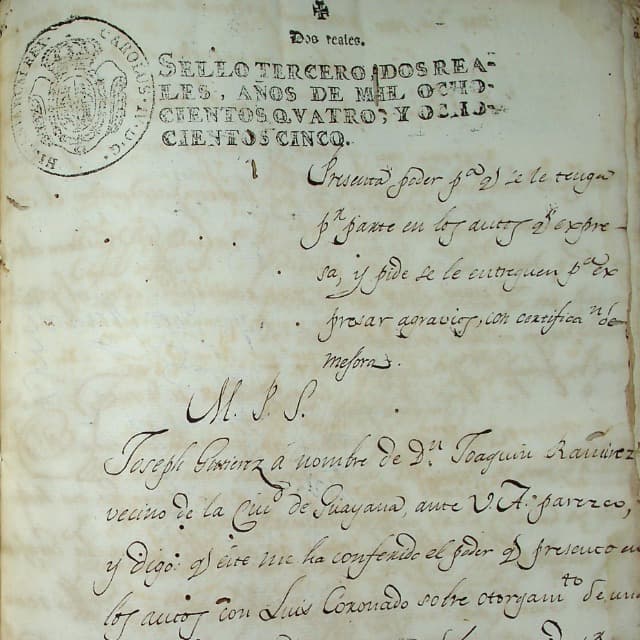 Dos reales.
CAROLUS IV D. G. HISPANIAR REX
SELLO TERCERO, DOS REA-
LES, AÑOS DE MIL OCHO-
CIENTOS QVATRO, Y OCHO-
CIENTOS CINCO.
Presenta poder pᵃ q̃ se le tenga
pʳ parte en los autos qᵉ expre-
sa, y pide se le entreguen pᵃ ex
presar agravios, con certificaⁿ de
mejora.
M. P. S.
Joseph Gutierrez á nombre de Dⁿ Joaquin Ramirez
vecino de la Ciuᵈ de Guayana, ante V. A. parezco,
y digo: q̃ éste me ha conferido el poder q̃ presento en
los autos con Luis Coronado sobre otorgamᵗᵒ de una